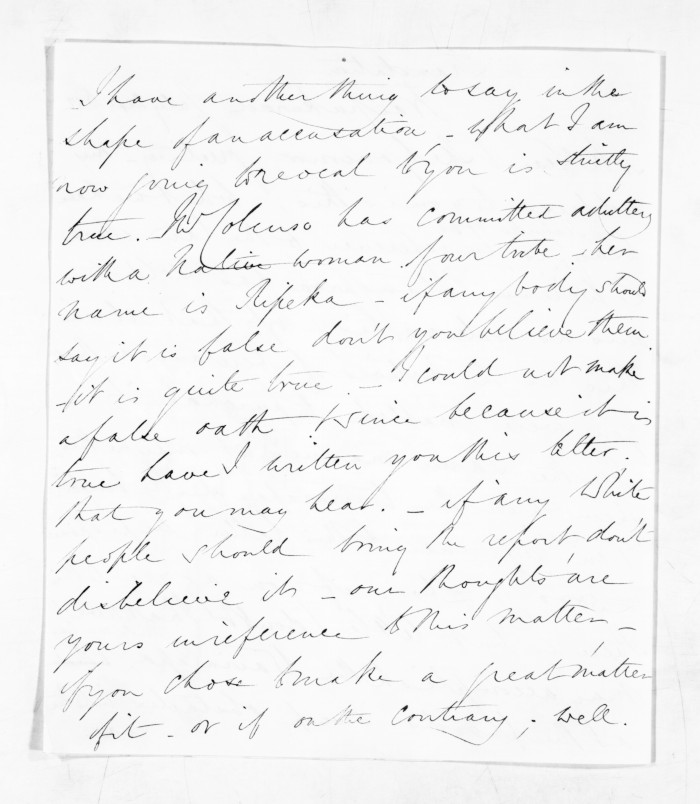 I have another thing to say in the
shape of an accusation, - what I am
now going to reveal to you is strictly
true. - Mr Colenso has committed adultery
with a native woman of our tribe - her
name is Ripeka - if any body should
say it is false don't you believe them
- it is quite true. - I could not make
a false oath & since because it is
true have I written you this letter.
that you may hear. - if any White
people should bring the report don't
disbelieve it - our thoughts are
yours in reference to this matter -
if you chose to make a great matter
of it - or if on the contrary, well.